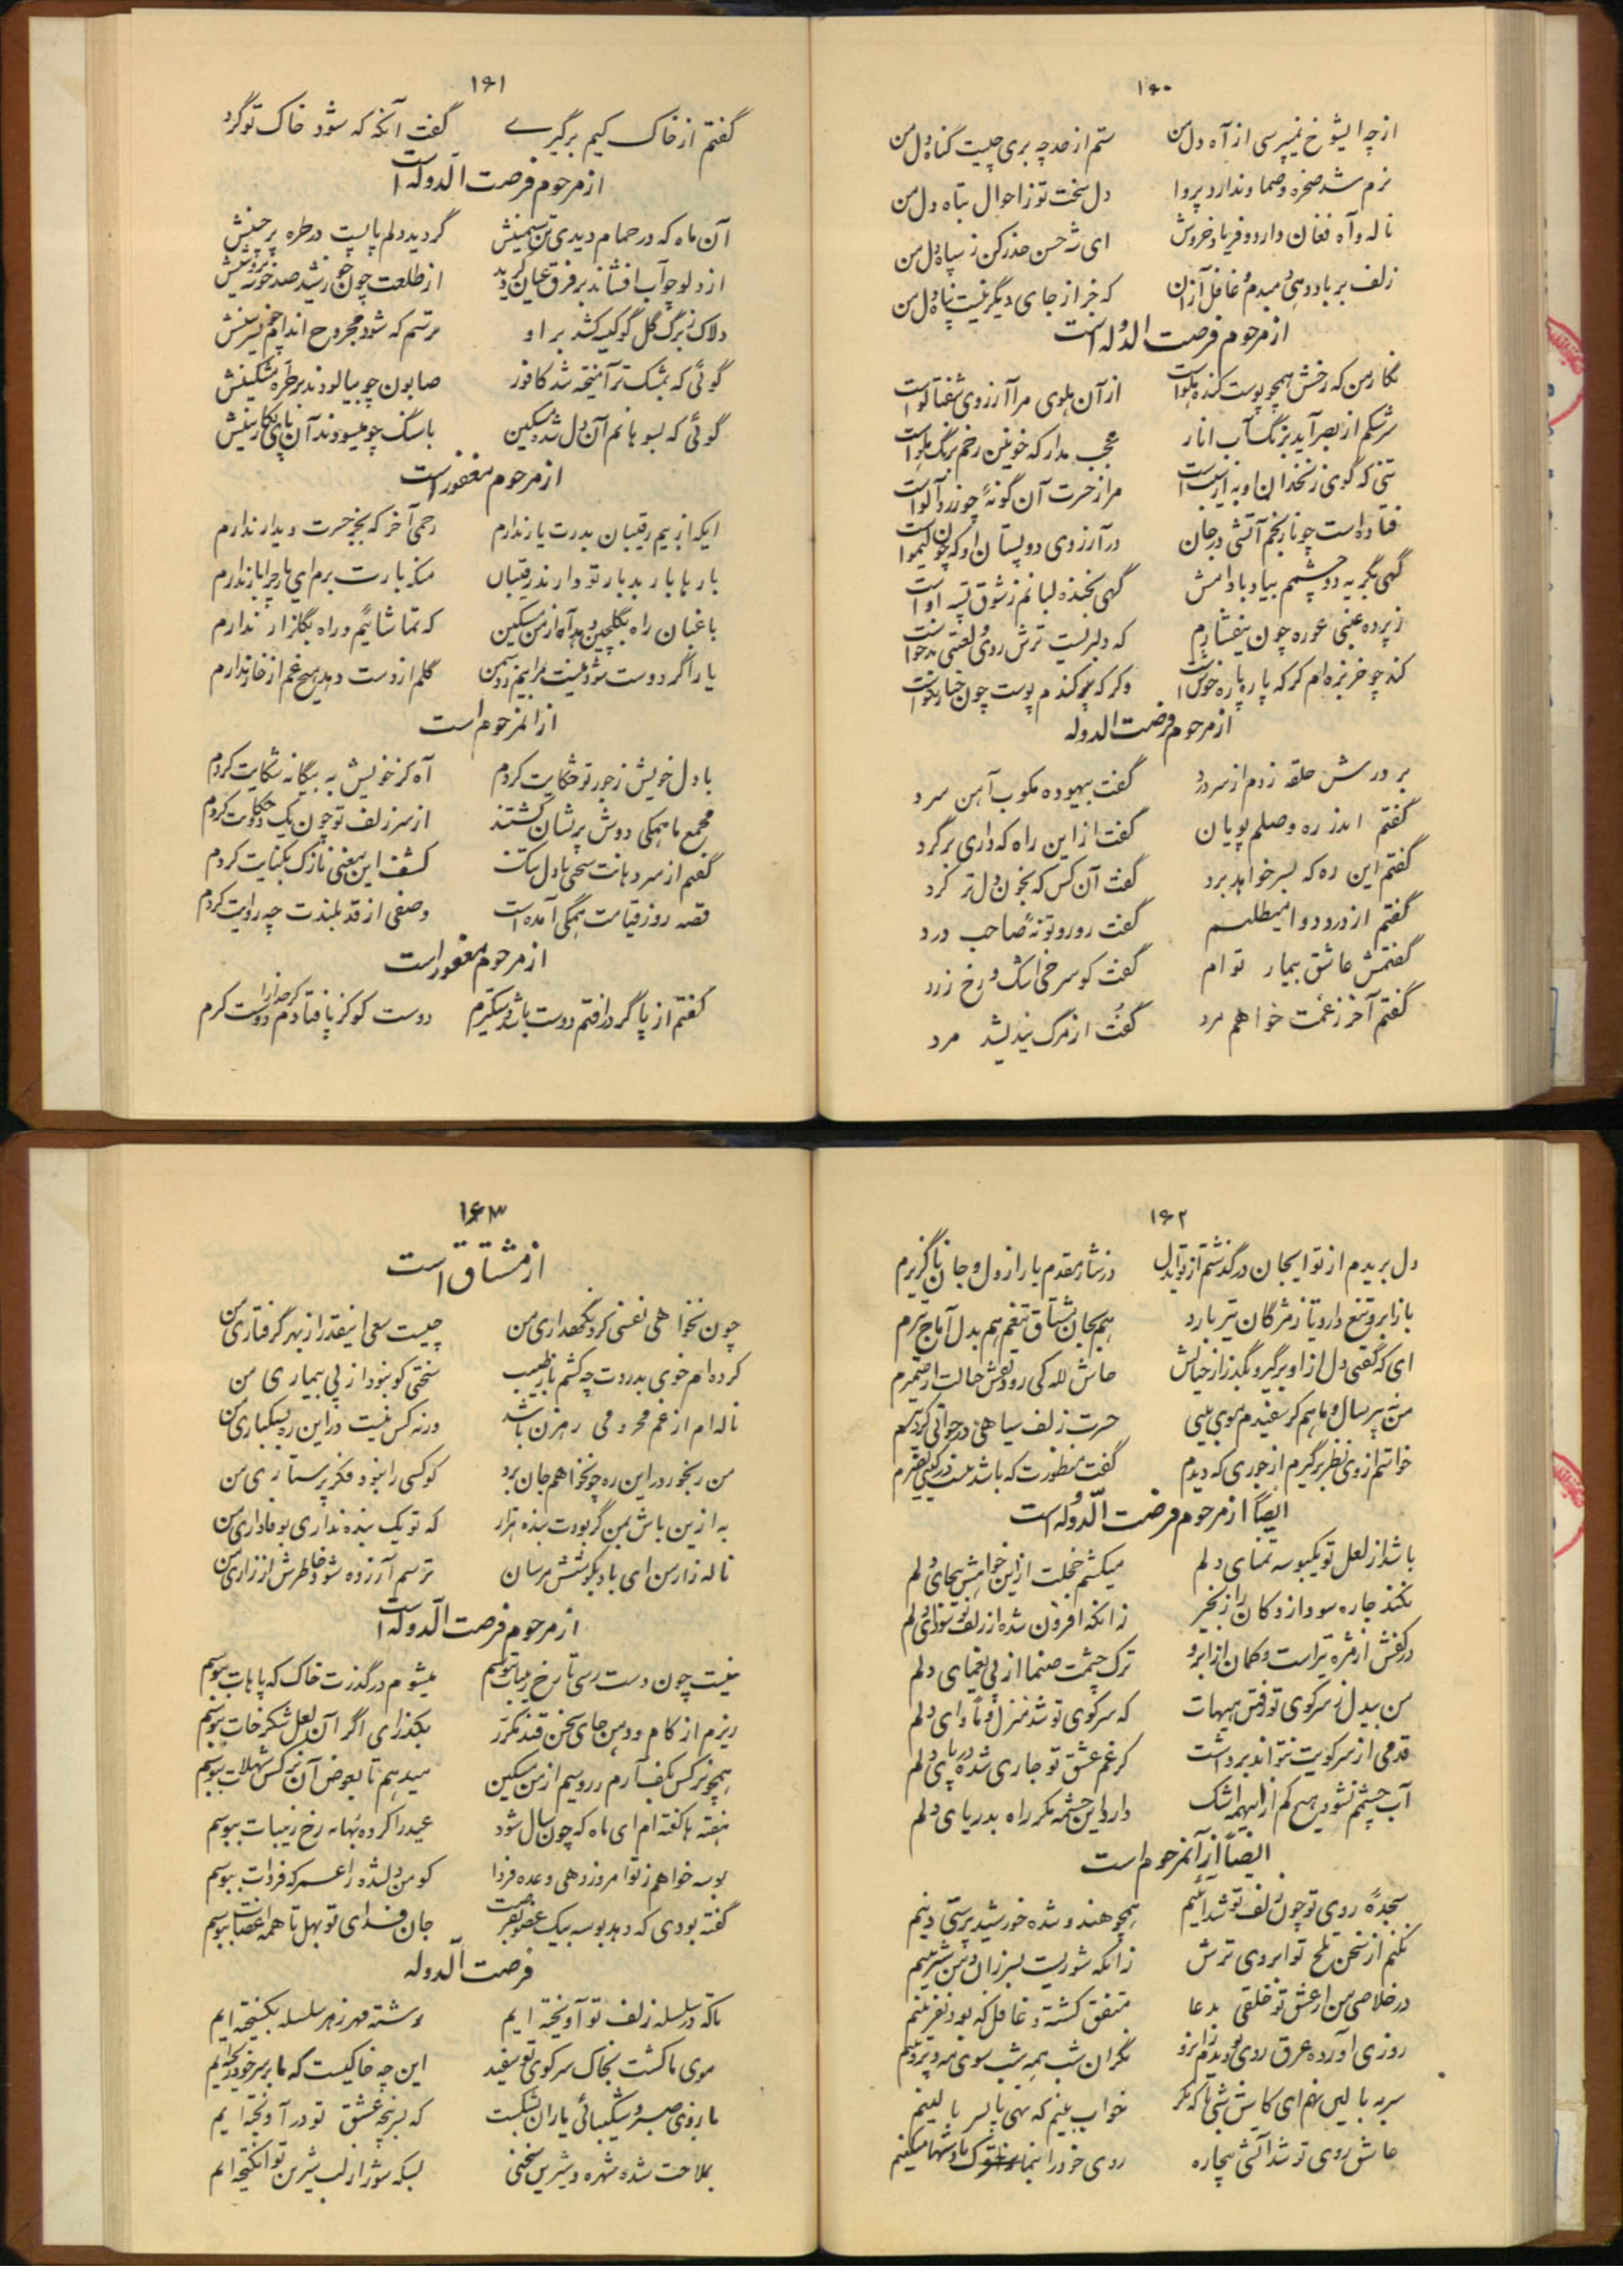 ۱۶۰
از چه ایشوخ نمیپرسی از آه دل من ستم از حد چه بری چیست گناه دل من
نرم شد صخره و صما و ندارد پروا دل سخت تو ز احوال تباه دل من
ناله و آه فغان دارد و فریاد و خروش ای شه حسن حذر کن ز سپاه دل من
زلف بر باد دهی میدم غافل از آن که جز از جای دیگر نیست پناه دل من
از مرحوم فرصت الدوله است
نگار من که رخش همچو پوست کنده هلو است از آن هلوی مرا آرزوی شفتالو است
سرشکم از بصر آید برنگ آب انار عجب مدار که خونین رخم برنگ
که گوی زنخدان او به از سیب است مرا ز حسرت آن گونهٔ چو زرد آلو است
فتاده است چو نارنجم آتشی در جان در آرزوی دو پستان او که چون لیمو است
گهی بگریه دو چشمم بیاد بادامش گهی بخنده لبانم ز شوق پسته او است
ز پرده عنبی غوره چون بیفشارم که دلبریست ترش روی و لعبتی بدخو است
کند چو خربزه ام گر که پاره پاره خوش است وگر که بر کندم پوست چون خیار نکو است
از مرحوم فرصت الدوله
بر درش حلقه زدم از سر درد گفت بیهوده مکوب آهن سرد
گفتم اندر ره وصلم پویان گفت از این راه که داری برگرد
گفتم این ره که بسر خواهد برد گفت آن کس که بخون دل تر کرد
گفتم از درد دوا میطلبم گفت رو رو تو نهٔ صاحب درد
گفتمش عاشق بیمار توام گفت کو سرخی اشک و رخ زرد
گفتم آخر ز غمت خواهم مرد گفت از مرگ نیندیشد مرد
۱۶۱
گفتم از خاک کیم برگیری گفت آنگه که شود خاک تو گرد
از مرحوم فرصت الدوله است
آن ماه که در حمام دیدی تن سیمینش گردید دلم پابست در طره پرچینش
از دلو چو آب افشاند بر فرق عیان گردید از طلعت چون خورشید صد خوشه پروینش
دلاک ز برگ گل گو کیسه کشد بر او ترسم که شود مجروح اندام چو نسرینش
گوئی که بمشک تر آمیخته شد کافور صابون چو بیالودند بر طره مشکینش
گوئی که بسوهانم آن دل شده مسکین با سنگ چو میسودند آن پای نگارینش
از مرحوم مغفور است
ایکه از بیم رقیبان بدرت یار ندارم رحمی آخر که بجز حسرت دیدار ندارم
بارها بار بدبار تو دارند رقیبان منکه بارت برم ای یار چرا بار ندارم
باغبان راه بگلچین دهد آه از من مسکین که تماشائیم و راه بگلزار ندارم
یار اگر دوست شود نیست مرا بیم ز دشمن گلم ار دست دهد هیچ غم از خار ندارم
از آنمرحوم است
با دل خویش ز جور تو حکایت کردم آه کز خویش به بیگانه شکایت کردم
مجمع ما همگی دوش پریشان گشتند از سر زلف تو چون یک دو حکایت کردم
گفتم از سر دهانت سخنی با دل تنگ کشف این معنی نازک بکنایت کردم
قصه روز قیامت همگی آمده است وصفی از قد بلندت چه روایت کردم
از مرحوم مغفور است
گفتم از پا گر درافتم دوست باشد دستگیرم دوست کو کز پا فتادم گر خدا را دوست گیرم
۱۶۲
دل بریدم از تو ایجان درگذشتم از تو ایدل در نثار مقدم یار از دل و جان ناگزیرم
باز ابرو تیغ دارد یا ز مژگان تیر بارد هم بجان مشتاق تیغم هم بدل آماج تیرم
ای که گفتی دل از او برگیر و بگذر از خیالش حاش لله کی رود نقش جمالت از ضمیرم
من نه پیر سال و ماهم گر سفیدم موی بینی حسرت زلف سیاهی در جوانی کرد پیرم
خواستم از وی نظر برگیرم از جوری که دیدم گفت منظورت که باشد نیست در گیتی نظیرم
ایضاً از مرحوم فرصت الدوله است
باشد از لعل تو یکبوسه تمنای دلم میکشم خجلت از این خواهش بیجای دلم
نکند چاره سودا زدگان را زنجیر زانکه افزون شده از زلف تو سودای دلم
در کفش از مژه تیر است و کمان از ابرو ترک چشمت صنما از پی یغمای دلم
من بیدل ز سر کوی تو رفتن هیهات که سر کوی تو شد منزل و مأوای دلم
قدمی از سر کویت نتواند برداشت کز غم عشق تو جاری شده دریای دلم
آب چشمم نشود هیچ کم از اینهمه اشک دارد این چشمه مگر راه بدریای دلم
ایضاً از آنمرحوم است
سجده روی تو چون زلف تو شد آئینم همچو هندو شده خورشید پرستی دینم
نکنم از سخن تلخ تو ابروی ترش زانکه شوریست بسر زان لب شیرینم
در خلاصی من از عشق تو خلقی بدعا متفق گشته و غافل که بود نفرینم
روزی آورده عرق روی تو دیدم زانرو نگران شب همه شب سوی مه و پروینم
سر به بالین نهم ای کاش شبی تا که مگر خواب بینم که نهی پا بسر بالینم
عاشق روی تو شد آتشی بیچاره روی خود را بنما
۱۶۳
از مشتاق است
چون نخواهی نفسی کرد نگهداری من چیست سعی اینقدر از بهر گرفتاری من
کرده ام خوی بدردت چه کشم ناز طبیب سختی کو نبود از پی بیماری من
ناله ام از غم محرومی رهزن باشد ورنه کس نیست در این ره بسبکباری من
من رنجور در این ره چو نخواهم جان برد کو کسی را نبود فکر پرستاری من
به از این باش بمن گر بودت بنده هزار که تو یک بنده نداری بوفاداری من
ناله زار من ای باد بگوشش مرسان ترسم آزرده شود خاطرش از زاری من
از مرحوم فرصت الدوله است
نیست چون دست رسی تا رخ زیبات ببوسم میشوم در گذرت خاک که پاهات ببوسم
ریزم از کام و دهن جای سخن قند مکرر بگذاری اگر آن لعل شکرخات ببوسم
همچو نرگس بکف آرم زر و سیم از من مسکین میدهم تا بعوض آن نرگس شهلات ببوسم
هفته ها گفته ام ای ماه که چون سال شود عید را کرده بهانه رخ زیبات ببوسم
بوسه خواهم ز تو امروز دهی وعده فردا کو من دلشده را عمر که فردات ببوسم
گفته بودی که دهد بوسه بیک عضو بفرصت جان فدای تو بهل تا همه اعضات ببوسم
فرصت الدوله
تا که در سلسله زلف تو آویخته ایم رشته مهر ز هر سلسله بگسیخته ایم
موی ما گشت بخاک سر کوی تو سفید این چه خاکیست که ما بر سر خود ریخته ایم
بازوی صبر و شکیبائی یاران بشکست که بسر پنجه عشق تو درآویخته ایم
بملاحت شده شهره و شیرین سخنی بسکه شور از لب شیرین تو انگیخته ایم